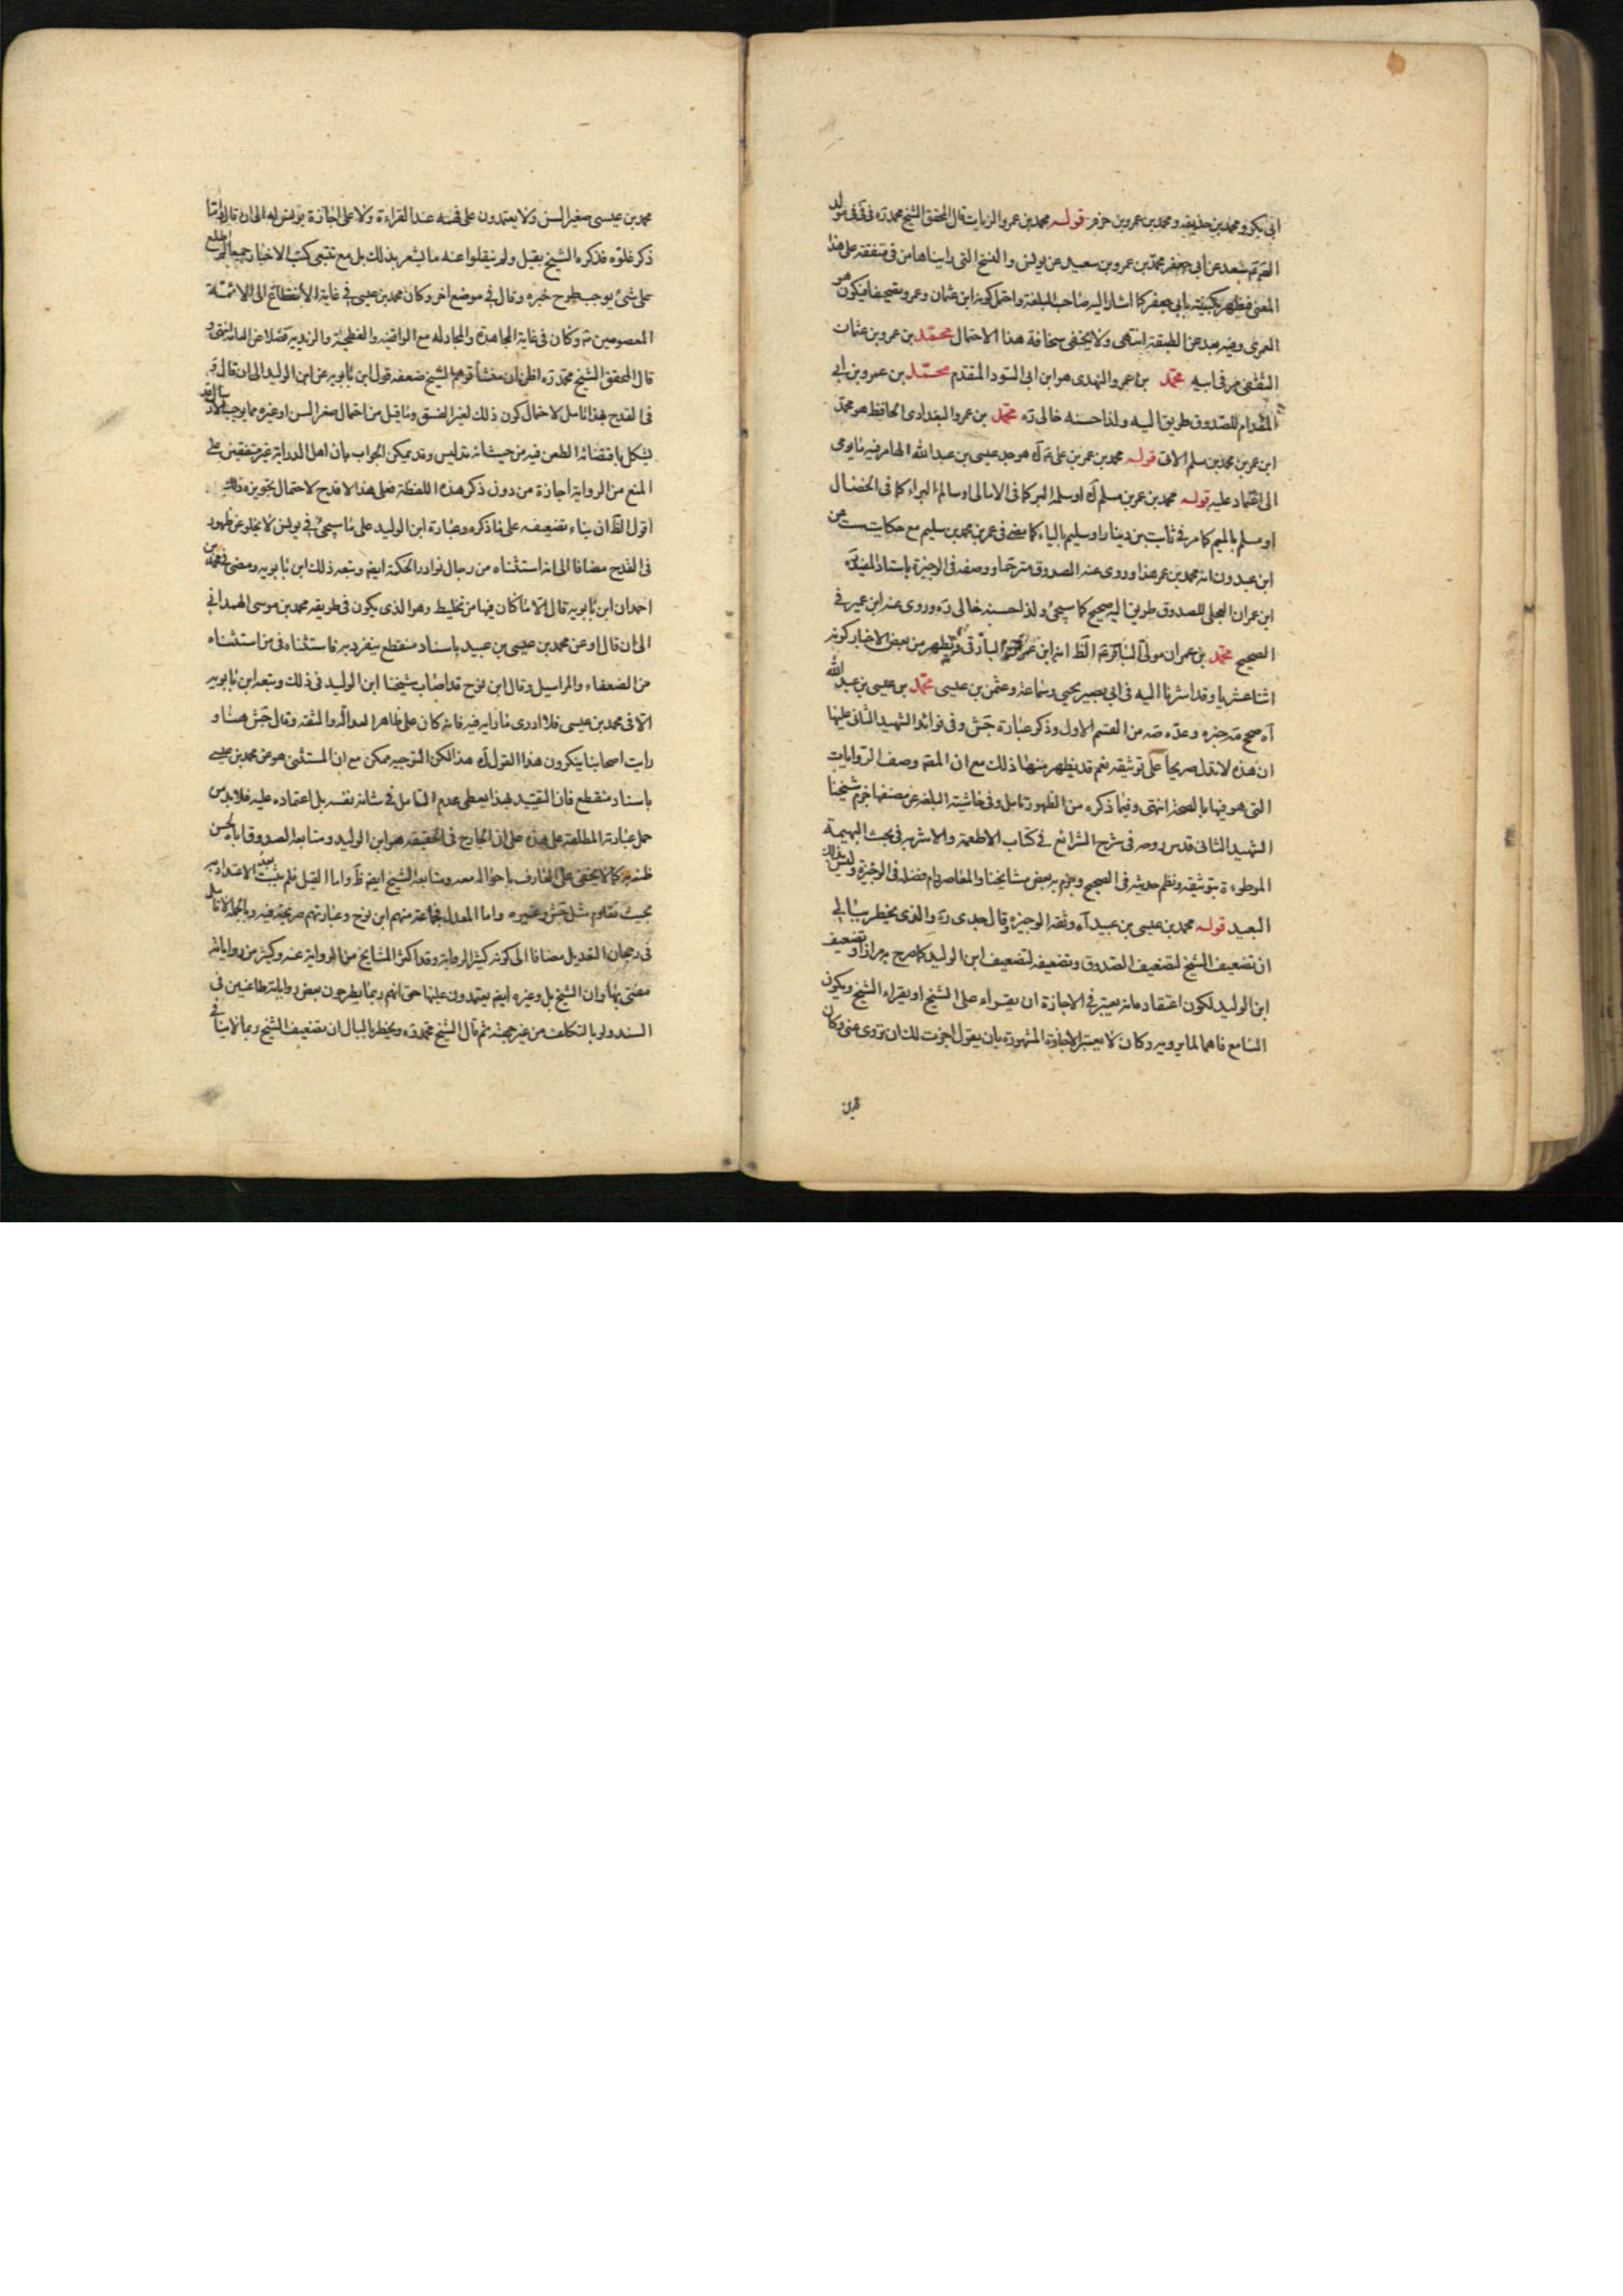 ابى بكر ومحمد بن حذيفه ومحمد بن عمرو بن حزم قوله محمد بن عمرو الزيات قال المحقق الشيخ محمد ره فى مولد
سعد عن أبى جعفر محمد بن عمرو بن سعيد عن يونس والنسخ التى رايناها من فى متفقة على هذا
المعنى فظهر تكنيته بابى جعفر كما اشار اليه صاحب البلغة واحتمل كونه ابن عثمان وعمرو تصحيفا فيكون هو
العمرى وفيه بعد عن الطبقة انتهى ولا يخفى سخافة هذا الاحتمال محمّد بن عمرو بن عثمان
الثقفى مر فى ابيه محمّد بن عمرو النهدى هو ابن ابى المقدم محمّد بن عمرو بن ابى
المقدام للصّدوق طريق اليه ولذا حسنه خالى ره محمّد بن عمرو البغدادى الحافظ هو محمّد
ابن عمر بن محمد بن سلم الاتى قوله محمد بن عمر بن على هو جد عيسى بن عبد الله الهامر فيه ما يومى
الى اعتماد عليه قوله محمد بن عمر بن مسلم اه او سلم البر كما فى الامالى او سالم البراء كما فى الخصال
او مسلم بالميم كما مر فى ثابت بن دينار او سليم بالياء كما مضى فى عمر بن محمد بن سليم مع حكايت عن
ابن عبدون انه محمد بن عمر هذا وروى عنه الصدوق مترحّما ووصفه فى الوجيزة باستاذ المفيد ره
ابن عمران العجلى للصدوق طريق اليه صحيح كما سيجئ ولذا حسنه خالى ره وروى عنه ابن عمير فى
الصحيح محمّد بن عمران مولى الباقر ع الظ انه ابن ويظهر من بعض الاخبار كونه
اثنا عشريا وقد اشرنا اليه فى ابى بصير يحيى وسماعة وعثمن بن عيسى محمّد بن عيسى بن عبد الله
آه صحح مه خبره وعدّه صه من القسم الاول وذكر عبارة جش وفى فوائد الشهيد الثانى عليها
ان هذه لا تدل صريحا على توثيقه نعم قد يظهر منها ذلك مع ان المصـ وصف الروايات
التى هو فيها بالصحة انتهى وفيما ذكره من الظهور تامل وفى حاشية البلغة عن مصنفها جزم شيخنا
الشهيد الثانى قدس روحه فى شرح الشرائع فى كتاب الاطعمة والاشربه فى بحث البهيمة
الموطوءة بتوثيقه ونظم حديثه فى الصحيح وجزم به بعض مشايخنا المعاصر دام فضله فى الوجيزة وليس ذلك
البعيد قوله محمد بن عيسى بن عبيد آه وثقه الوجيزه وقال جدى ره والذى يخطر ببالى
ان تضعيف الشيخ لتضعيف الصّدوق وتضعيفه لتضعيف ابن الوليد كما صرح به مرارا وتضعيف
ابن الوليد لكون اعتقاده انه يعتبر فى الاجازة ان يقراء على الشيخ او يقراء الشيخ ويكون
السامع فاهما لما يرويه وكان لا يعتبر الاجازة المشهورة بان يقول اجزت لك ان تروى عنى وكان
محمد بن عيسى صغير السن ولا يعتمدون على فهمه عند القراءة ولا على اجازة يونس له الى ان قال واما
ذكر غلوّه فذكره الشيخ بقيل ولم ينقلوا عنه ما يشعر بذلك بل مع تتبعى كتب الاخبار جميعا لم اطلع
على شئ يوجب طرح خبره وقال فى موضع اخر وكان محمد بن عيسى فى غاية الانقطاع الى الائمّة
المعصومين ع وكان فى غاية المجاهدة والمجادلة مع الواقفيه والفطحيّة والزيديه فضلا عن العامة انتهى و
قال المحقق الشيخ محمّد ره اظن ان منشأ توهم الشيخ ضعفه قول ابن بابويه عن ابن الوليد الى ان قال و
فى القدح بهذا تامل لاحتمال كون ذلك لغير الفسق وما قيل من احتمال صغر السن او غيره مما يوجب الارسال
يشكل باقتضائه الطعن فيه من حيث انه تدليس وقد يمكن الجواب بان اهل الدراية غير متفقين على
المنع من الرواية اجازة من دون ذكر هذه اللفظة فعلى هذا لا قدح لاحتمال تجويزه ذلك
اقول الظ ان بناء تضعيفه على ما ذكره وعبارة ابن الوليد على ما سيجئ فى يونس لا يخلو عن ظهور
فى القدح مضافا الى انه استثناه من رجال نوادر الحكمة ايضم وتبعه ذلك ابن بابويه ومضى فى ترجمة محمد بن
احمد ان ابن بابويه قال الا ما كان فيها من تخليط وهو الذى يكون فى طريقه محمد بن موسى الهمدانى
الى ان قال او عن محمد بن عيسى بن عبيد باسناد منقطع ينفرد به فاستثناه فى من استثناه
من الضعفاء والمراسيل وقال ابن نوح قد اصاب شيخنا ابن الوليد فى ذلك وتبعه ابن بابويه
الا فى محمد بن عيسى فلا ادرى ما رابه فيه فانه كان على ظاهر العدالة والثقه وقال جش هنا و
رايت اصحابنا ينكرون هذا القول اه هذا لكن التوجيه ممكن مع ان المستثنى هو عن محمد بن عيسى
باسناد منقطع فان التقييد بهذا يعطى عدم التامل فى شانه نفسه بل اعتماده عليه فلا بد من
حمل عبارته المطلقة على هذه على ان الجارح فى الحقيقه هو ابن الوليد ومتابعة الصدوق اياه لحسن
ظنه به كما لا يخفى على العارف باحواله معه ومتابعة الشيخ ايضم ظ واما القيل فلم يثبت الاعتداد به
بحيث تقاوم مثل جش وغيره واما المعدل فجماعة منهم ابن نوح وعبارتهم صريحة فيه وبالجمله لا تامل
فى رجحان التعديل مضافا الى كونه كثير الرواية وقد اكثر المشايخ من الرواية عنه وكثير من رواياته
مفتى بها وان الشيخ بل وغيره ايضم يعتمدون عليها حتى انهم ربما يطرحون بعض رواياته طاعنين فى
السند ولو بالتكلف من غير جهته ثم قال الشيخ محمد ره ويخطر بالبال ان تضعيف الشيخ ربما لا ينافى